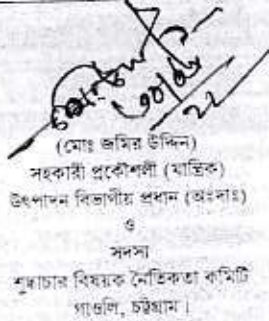 ২২
(মোঃ জমির উদ্দিন)
সহকারী প্রকৌশলী (যান্ত্রিক)
উৎপাদন বিভাগীয় প্রধান (অঃদাঃ)
ও
সদস্য
শুদ্ধাচার বিষয়ক নৈতিকতা কমিটি
গাওলি, চট্টগ্রাম।